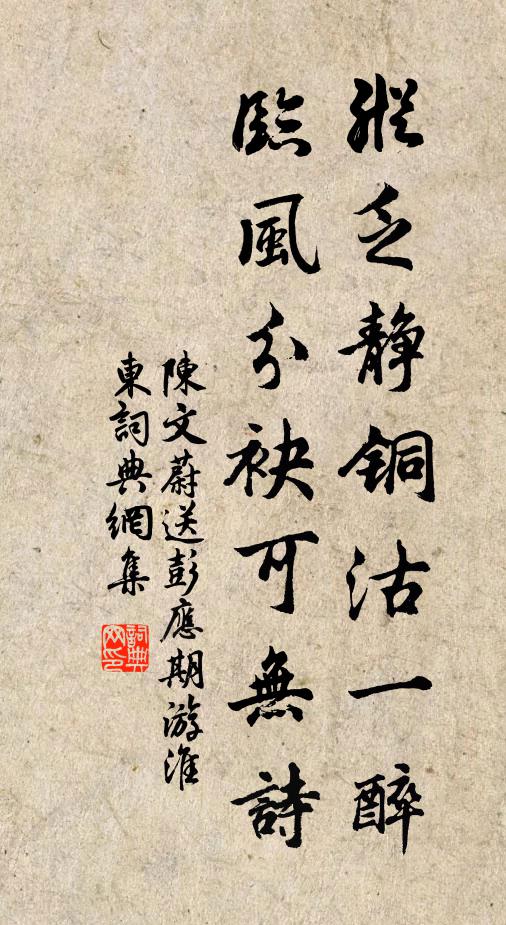 縱乏靜銅沽一醉
臨風分袂可無詩
陳文蔚送彭應期游淮
東詞典網集
詞典
网印